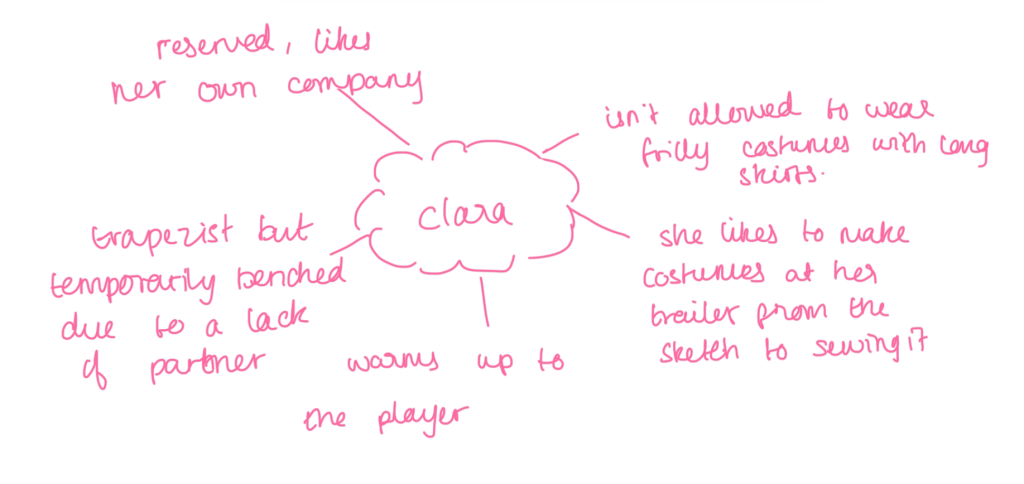 reserved, likes
her own company
isn't allowed to wear
frilly costumes with long
skirts.
clara
trapezist but
temporarily benched
due to a lack
of partner
she likes to make
costumes at her
trailer from the
sketch to sewing it
warms up to
the player